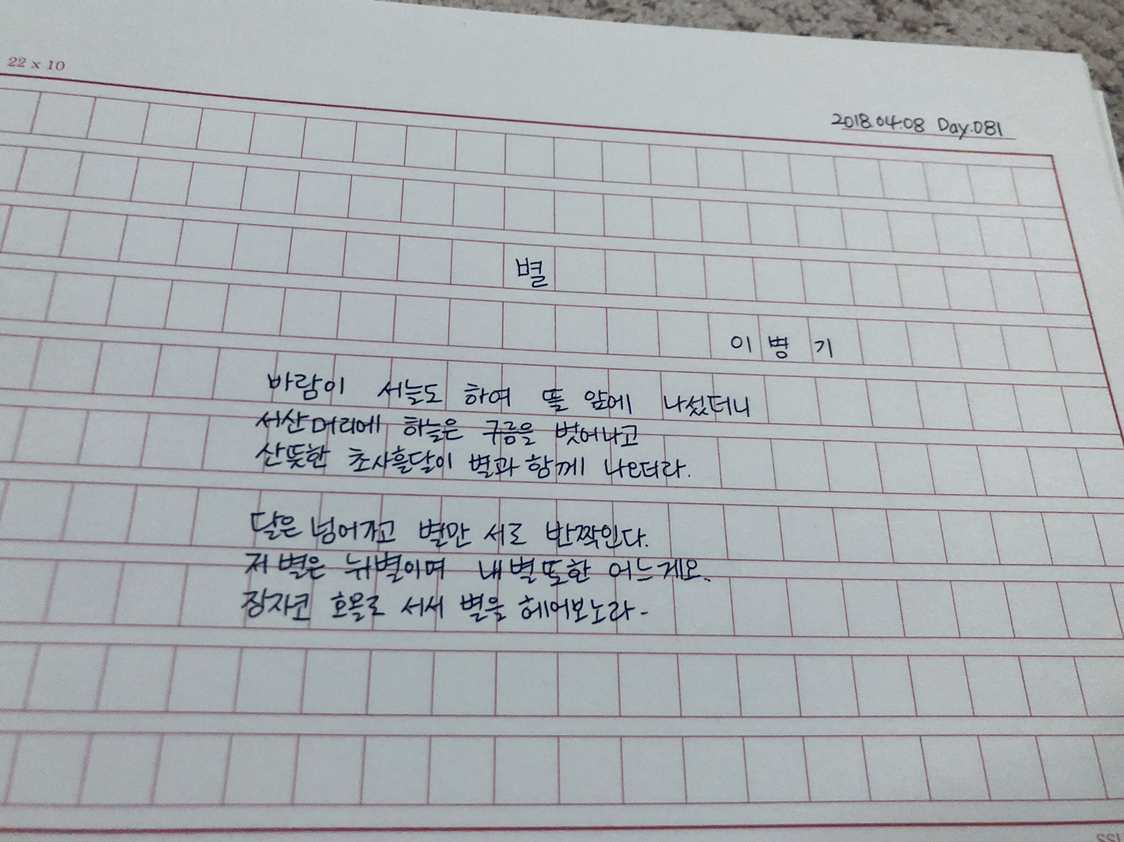 22 x 10
2018.04.08 Day.081
별
이병기
바람이 서늘도 하여 뜰 앞에 나섰더니
서산머리에 하늘은 구름을 벗어나고
산뜻한 초사흘달이 별과 함께 나오더라.
달은 넘어가고 별만 서로 반짝인다.
저 별은 뉘별이며 내 별 또한 어느게오.
잠자코 호올로 서서 별을 헤어보노라-